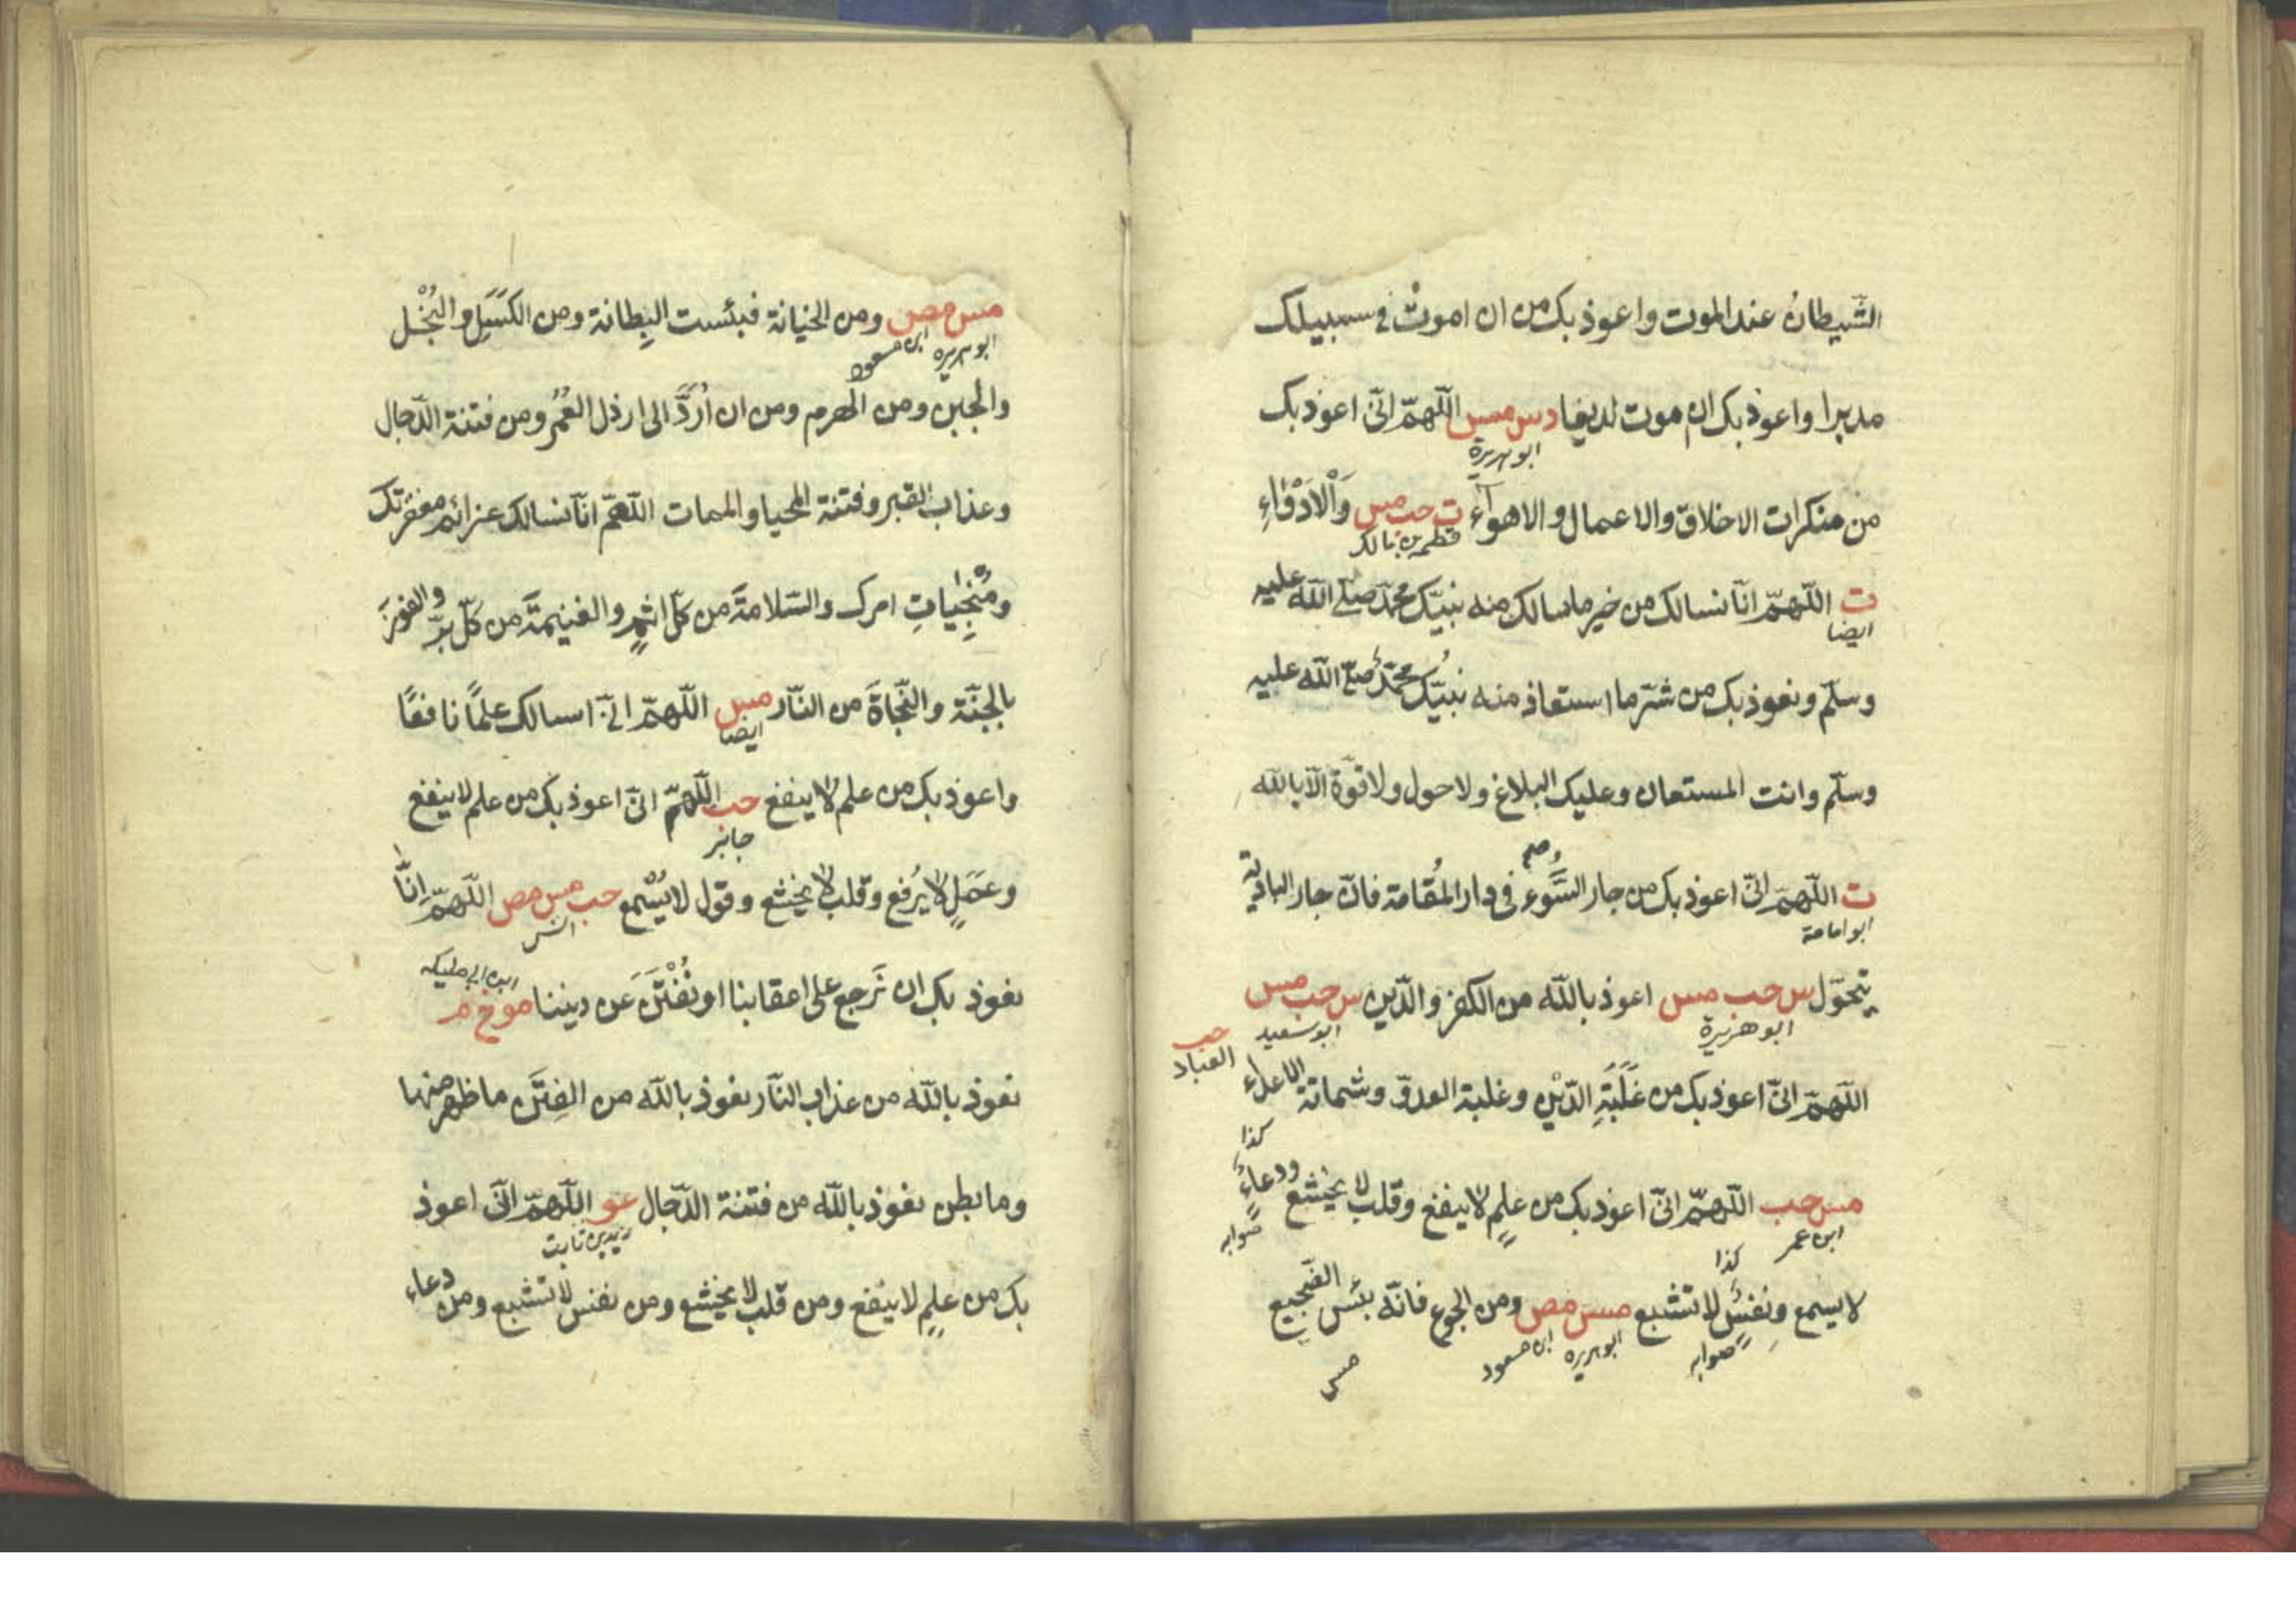 الشّيطانُ عند الموت واعوذ بك من ان اموتْ في سبيلك
مدبرا واعوذ بك ان موت لديغا دس مس اللّهمّ انّى اعوذ بك
ابو هريرة
من منكرات الاخلاق والاعمال والاهوآء ت حب مس وَالْاَدْوَاءِ
قطبه بن مالك
ت اللّهمّ انّا نسالك من خير ما سالك منه نبيّك محمّد صلّى اللّه عليه
ايضا
وسلّم ونعوذ بك من شرّ ما استعاذ منه نبيّك محمّد صلّى اللّه عليه
وسلّم وانت المستعان وعليك البلاغ ولا حول ولا قوّة الّا باللّه
ت اللّهمّ انّى اعوذ بك من جار السَّوء فى دار المُقامة فانّ جار البادية
ابو امامة
يتحوّل س حب مس اعوذ باللّه من الكفر والدّين س حب مس
ابو هريرة
ابو سعيد
حب
العباد
اللّهمّ انّى اعوذ بك من غَلَبَةِ الدّيْنِ وغلبة العدوّ وشماتة الاعداء
كذا
مس حب اللّهمّ انّى اعوذ بك من علمٍ لا ينفع وقلب لا يخشع ودعاءٍ
ابن عمر
صوابه
كذا
لا يسمع ونفسٍ لا تشبع مس مص ومن الجوع فانّه بئس الضّجيع
صوابه
ابو هريره
ابن مسعود
مس
مس مص ومن الخيانة فبئست البِطانة ومن الكَسَلِ والبُخْل
ابو هريره
ابن مسعود
والجبن ومن الهرم ومن ان اُرَدَّ الى ارذل العُمُر ومن فتنة الدّجال
وعذاب القبر وفتنة المحيا والممات اللّهمّ انّا نسالك عزائم مغفرتك
ومُنْجِياتِ امرك والسّلامةَ من كلّ اثمٍ والغنيمةَ من كلّ برّ والفوزَ
بالجنّة والنّجاةَ من النّار مس اللّهمّ انّى اسالك علماً نافعًا
ايضا
واعوذ بك من علم لا ينفع حب اللّهمّ انّى اعوذ بك من علم لا ينفع
جابر
وعَمَلٍ لا يُرفع وقلب لا يخشع وقول لا يُسْمع حب مس مص اللّهمّ انّا
انس
نعوذ بك ان نَرجع على اعقابنا او نُفْتَنَ عن ديننا مو خ م
ابن ابى مليكه
نعوذ باللّه من عذاب النّار نعوذ باللّه من الفِتَن ما ظهر منها
وما بطن نعوذ باللّه من فتنة الدّجال عو اللّهمّ انّى اعوذ
زيد بن ثابت
بك من علمٍ لا ينفع ومن قلب لا يخشع ومن نفس لا تشبع ومن دعاء